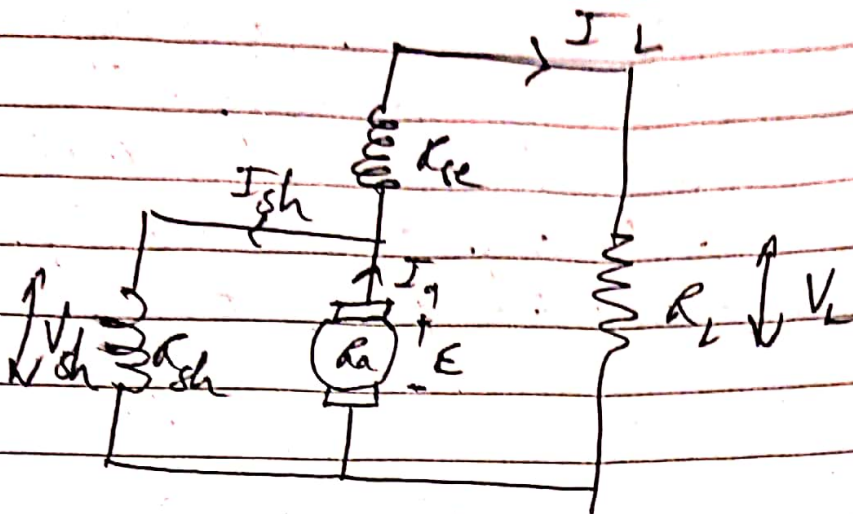 I L
Rse
Ish
Ia
+
Vsh
Rsh
Ra
E
-
RL
VL